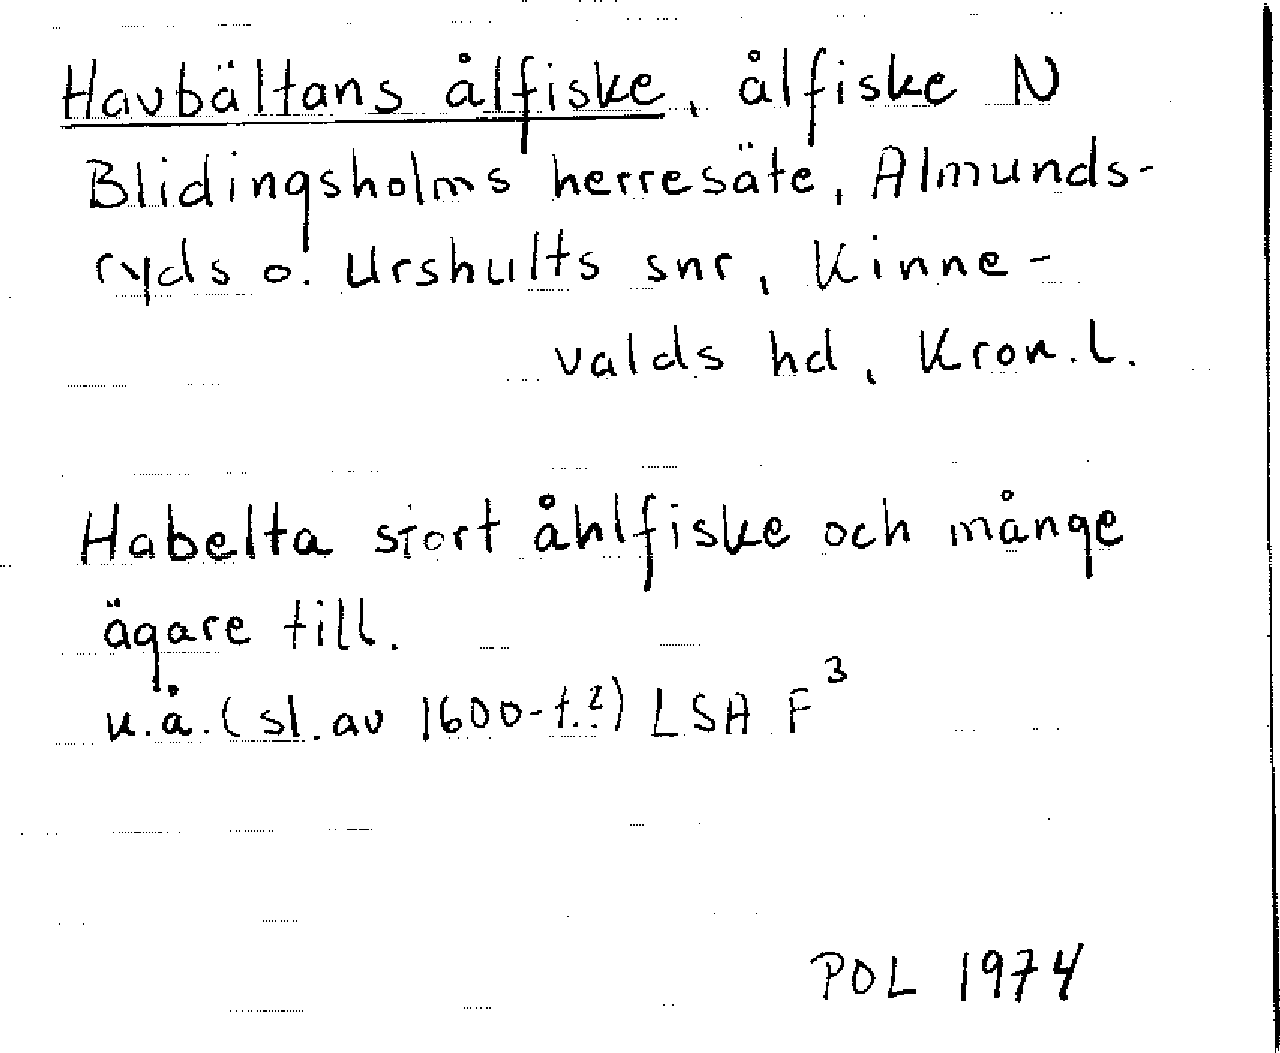 Havbältans ålfiske, ålfiske N
Blidingsholms herresäte, Almunds-
ryds o. Urshults snr, Kinne-
valds hd, Kron.l.
Habelta stort åhlfiske och månge
ägare till.
u.å. (sl. av 1600-t.?) LSA F³
POL 1974